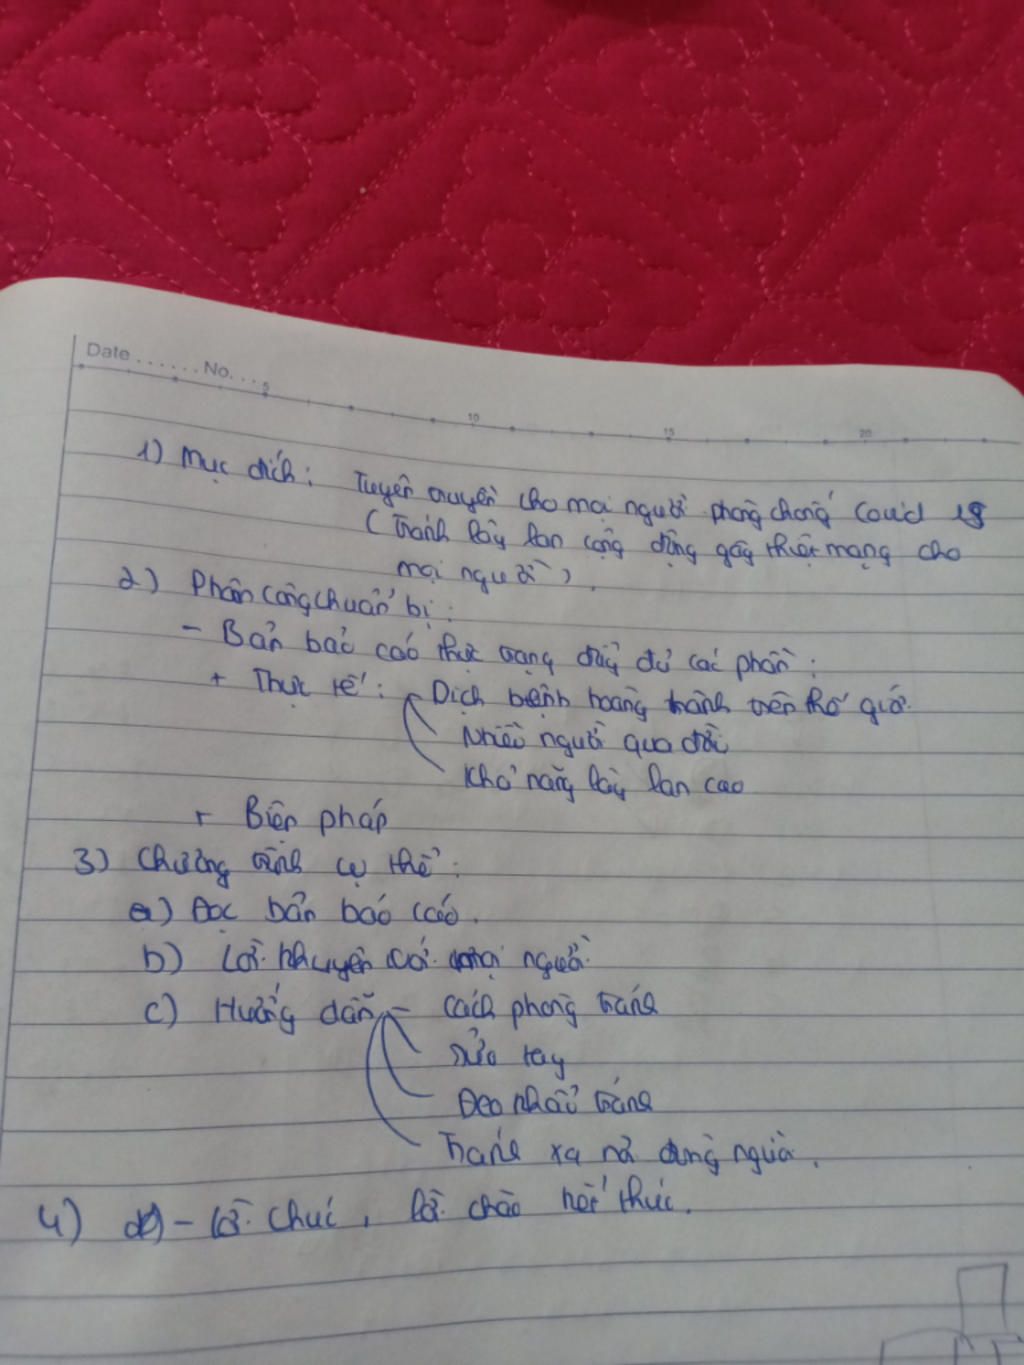 Date ...... No. ...
5 10 15 20
1) Mục đích : Tuyên truyền cho mọi người phòng chống Covid 19
( Tránh lây lan cộng đồng gây thiệt mạng cho
mọi người ) .
2) Phân công chuẩn bị :
- Bản báo cáo thực trạng đầy đủ các phần :
+ Thực tế : Dịch bệnh hoành hành trên thế giới.
Nhiều người qua đời
Khả năng lây lan cao
+ Biện pháp
3) Chương trình cụ thể :
a) Đọc bản báo cáo .
b) Lời khuyên với mọi người
c) Hướng dẫn - Cách phòng tránh
Rửa tay
Đeo khẩu trang
Tránh xa nơi đông người .
4) - Lời chúc , lời chào kết thúc .